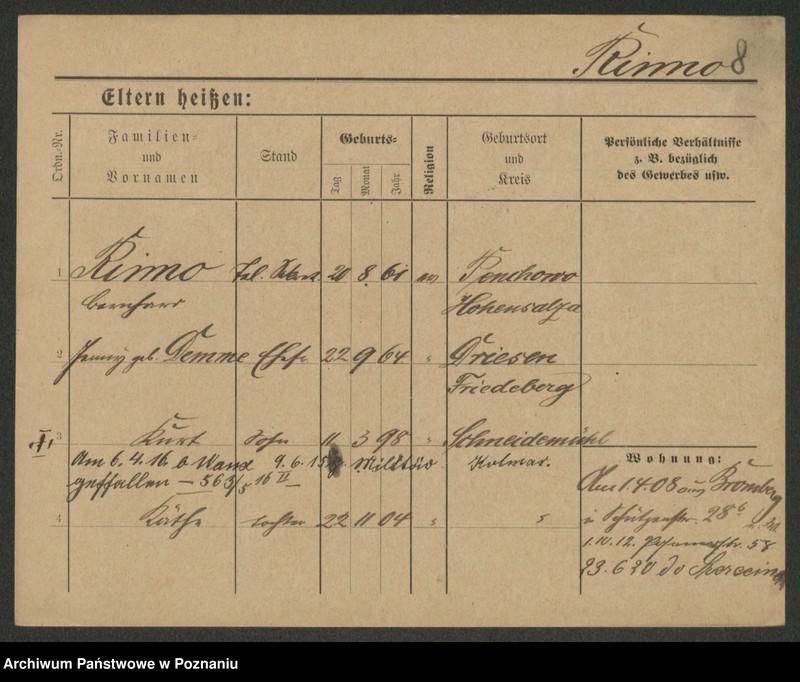 Rimmo 8
Eltern heißen:
Ordn.-Nr.
Familien-
und
Vornamen
Stand
Geburts-
Tag
Monat
Jahr
Religion
Geburtsort
und
Kreis
Persönliche Verhältnisse
z. B. bezüglich
des Gewerbes usw.
1 Rimmo 20 8 61 ev
Bernhard Hohensalza
2 geb. Demme Ehefr 22 9 64 " Driesen
Friedeberg
3 Kurt Sohn 11 3 98 " Schneidemühl
Am 6.4.16 9.6.15 Militär Kolmar.
gefallen — 563/5 16 II
4 Käthe Tochter 22 11 04 " "
Wohnung:
Am 1.4.08 aus Bromberg
i. Schützenstr. 28
1.10.12. 58
23.6 20
Archiwum Państwowe w Poznaniu